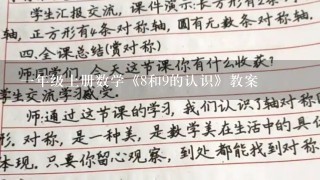 学生汇报交流，课件演示:长方形有2条
轴，正方形有4条对称轴，圆有无数条对称轴。
四.全课总结(赏对称)
师:今天这节课你有什么收获?
一年级上册数学《8和9的认识》教案
学生交流学习感受。
师:通过这节课的学习，我们认识了轴对称图
形.对称，是一种美，是数学美在生活中的具体
体现.只要你留心观察，到处都能找到对称